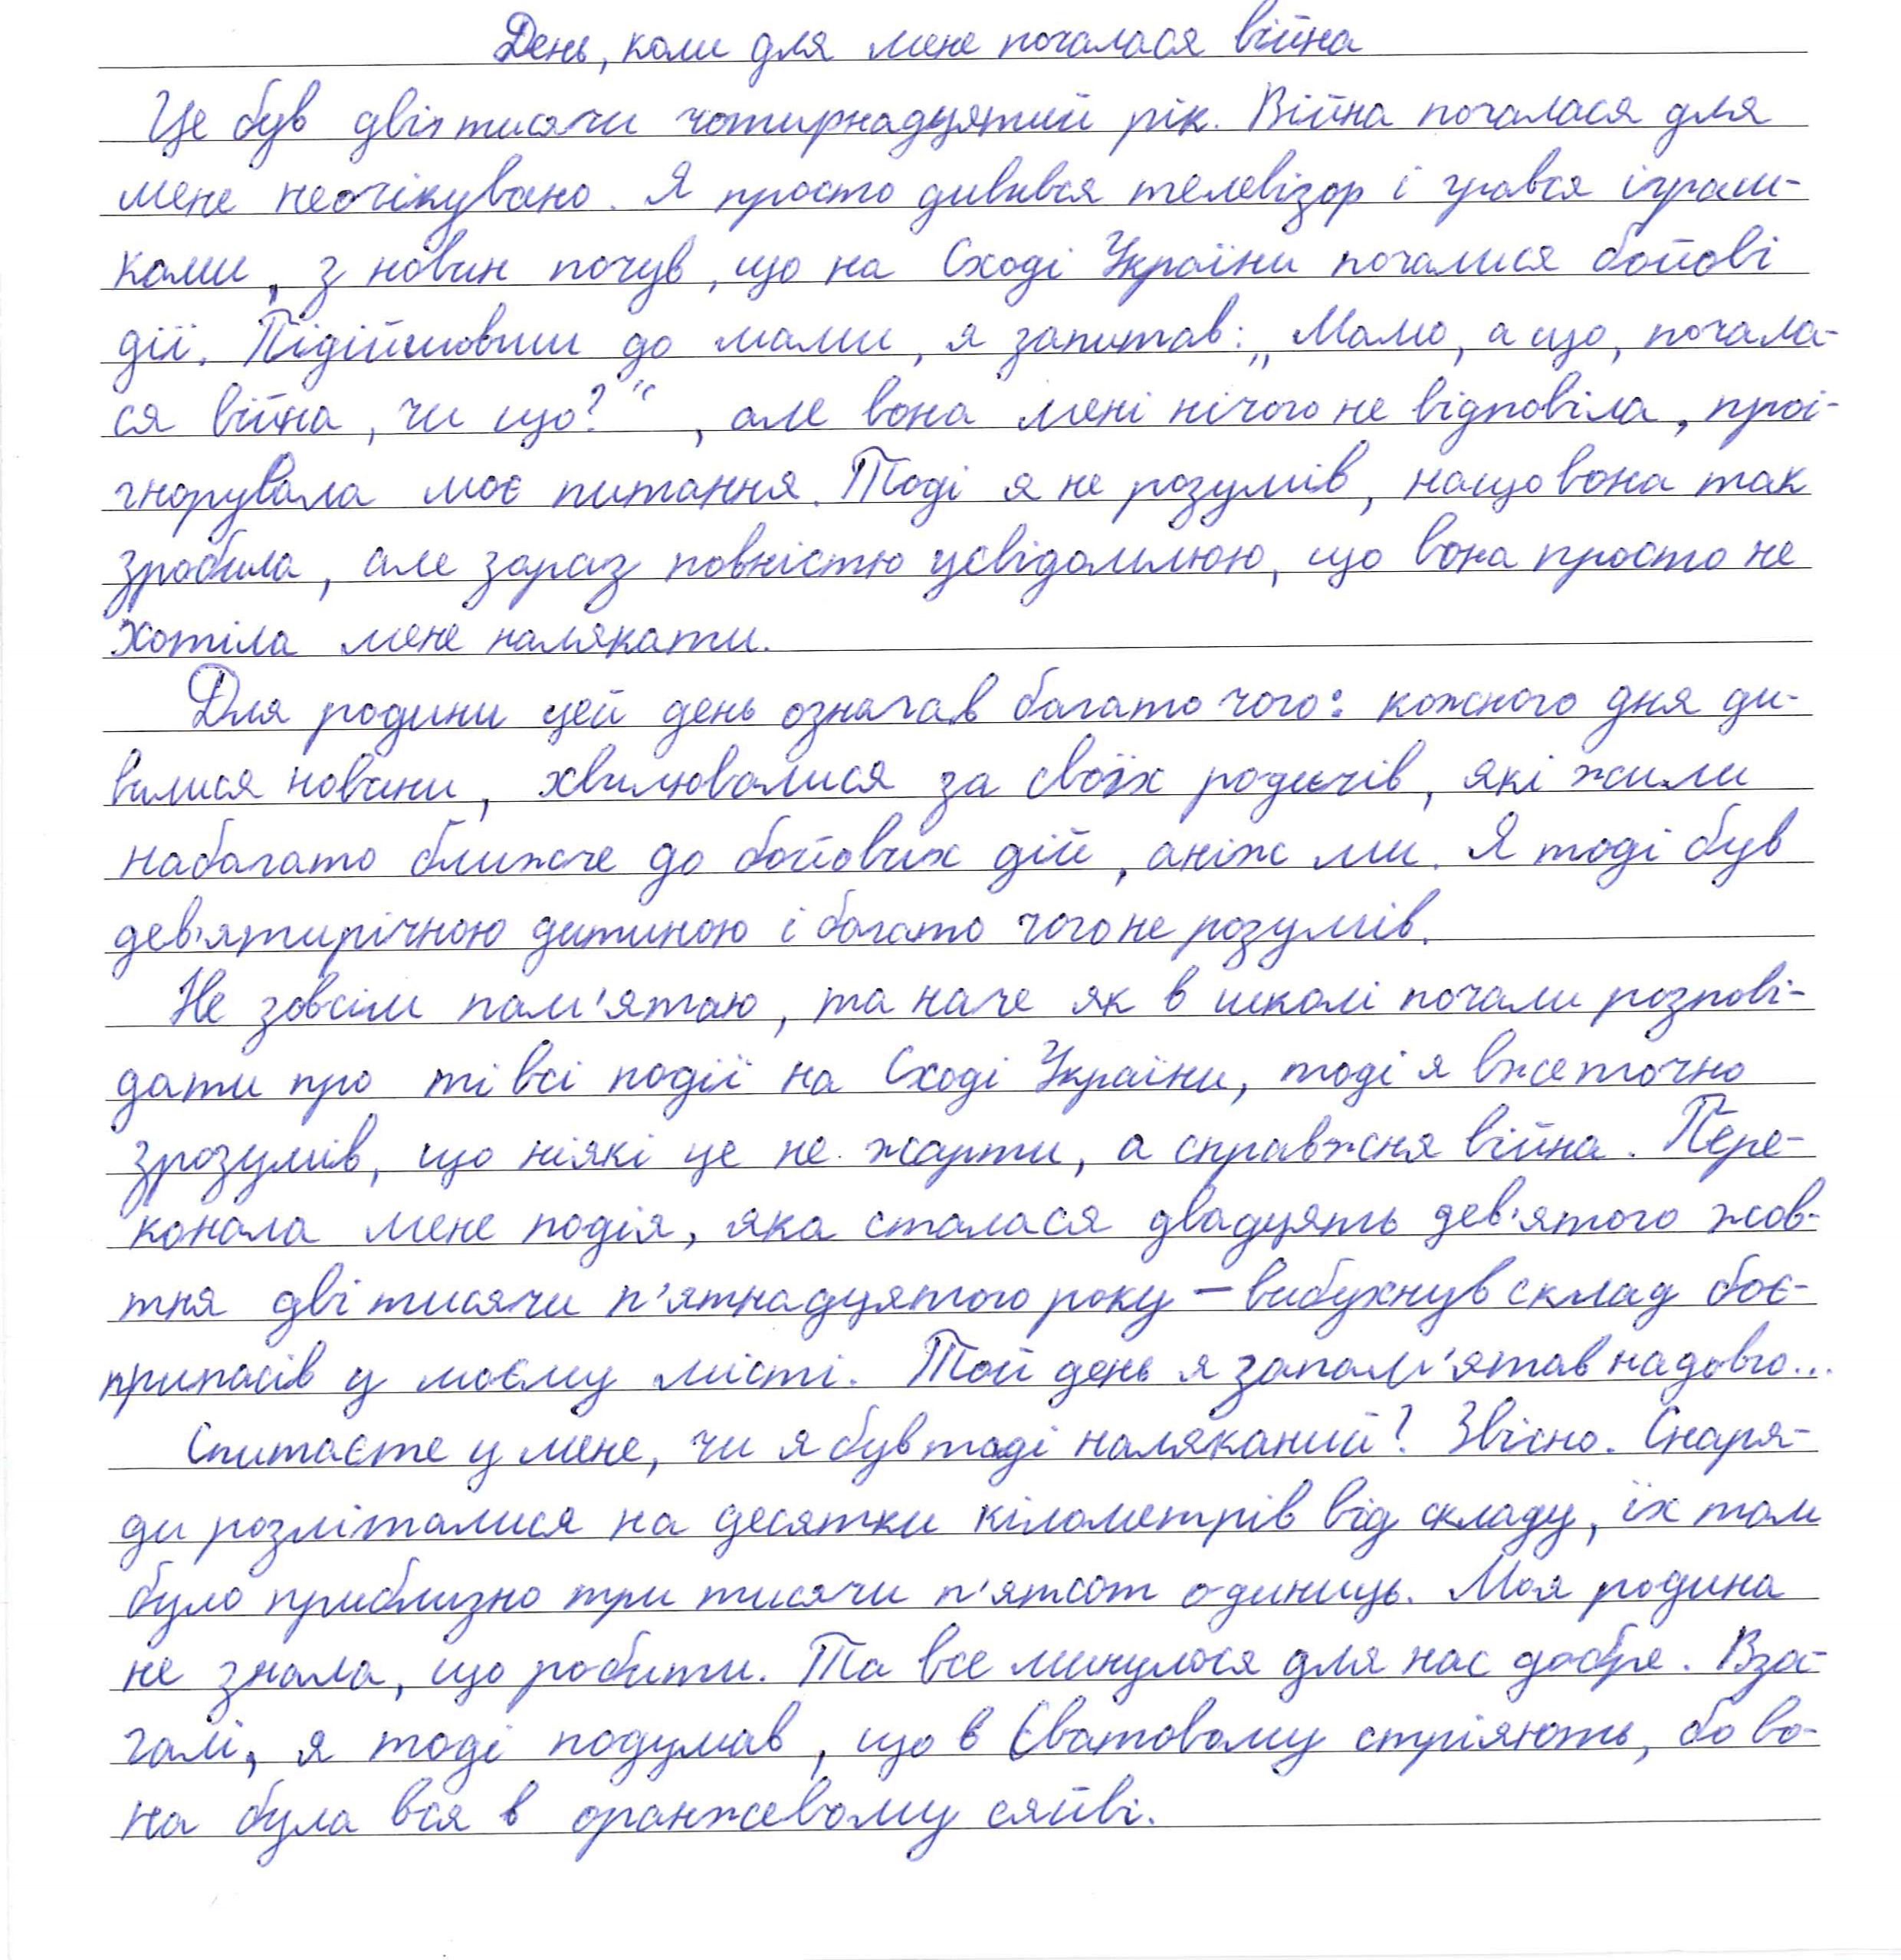 День, коли для мене почалася війна
Це був двіх тисячи чотирнадцятий рік. Війна почалася для
мене неочікувано. Я просто дивився телевізор і грався іграш-
ками, з новин почув, що на Сході України почалися бойові
дії. Підійшовши до мами, я запитав: „Мамо, а що, почала-
ся війна, чи що?“, але вона мені нічого не відповіла, проі-
гнорувала моє питання. Тоді я не розумів, нащо вона так
зробила, але зараз повністю усвідомлюю, що вона просто не
хотіла мене налякати.
Для родини цей день означав багато чого: кожного дня ди-
вилися новини, хвилювалися за своїх родичів, які жили
набагато ближче до бойових дій, аніж ми. Я тоді був
дев'ятирічною дитиною і багато чого не розумів.
Не зовсім пам'ятаю, та наче як в школі почали розпові-
дати про ті всі події на Сході України, тоді я вже точно
зрозумів, що ніякі це не жарти, а справжня війна. Пере-
конала мене подія, яка сталася двадцять дев'ятого жов-
тня дві тисячи п'ятнадцятого року – вибухнув склад боє-
припасів у моєму місті. Той день я запам'ятав надовго...
Спитаєте у мене, чи я був тоді наляканий? Звісно. Снаря-
ди розліталися на десятки кілометрів від складу, їх там
було приблизно три тисячи п'ятсот одиниць. Моя родина
не знала, що робити. Та все минулося для нас добре. Вза-
галі, я тоді подумав, що в Сватовому стріляють, бо во-
на була вся в оранжевому сяйві.